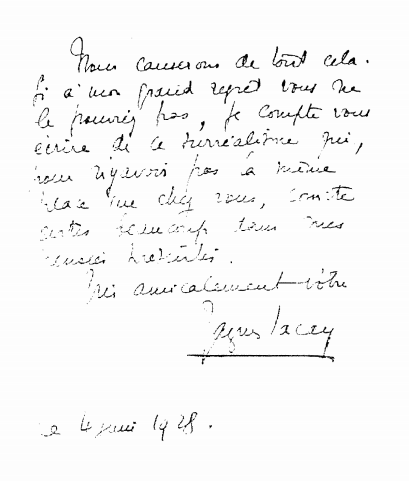 Nous causerons de tout cela.
Si à mon grand regret vous ne
le pouviez pas, je compte vous
écrire de ce surréalisme qui,
pour n'avoir pas la même
place que chez vous, compte
certes beaucoup dans mes
pensées
Très amicalement vôtre
Jacques Lacan
Le 4 juin 1928.